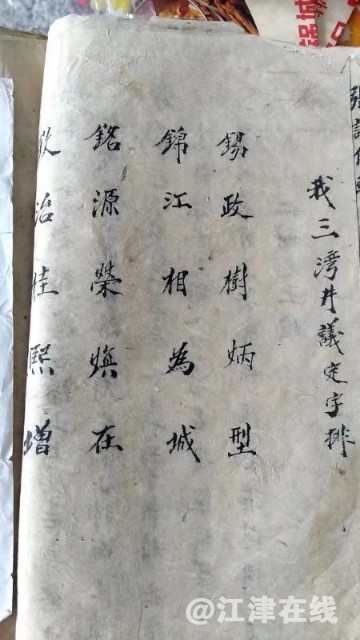 我三灣井議定字排
錫政樹炳型
錦江相為城
銘源榮熉在
欽治桂熙增
@江津在线